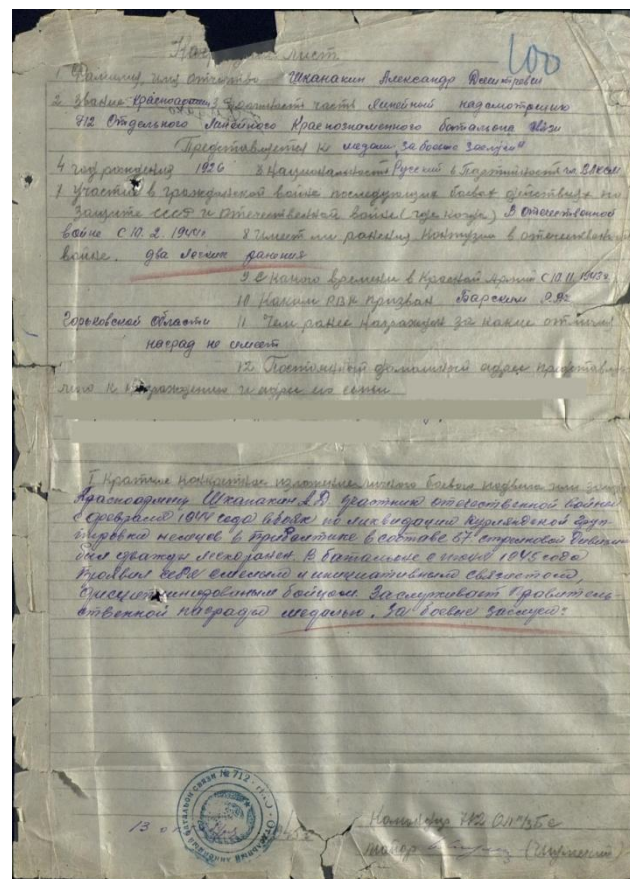 Наградной лист
100
1 Фамилия, имя отчество Шканакин Александр Дмитревич
2 Звание Красноармеец 3 Должность часть Линейный надсмотрщик
712 Отдельного Линейного Краснознаменного батальона связи
Представляется к медали "За боевые заслуги"
4 год рождения 1926 5 Национальность Русский 6 Партийность чл. ВЛКСМ
7 Участие в гражданской войне последующих боевых действиях по
защите СССР и отечественной войне (где когда) В отечественной
войне с 10.2.1944г 8 Имеет ли ранения контузии в отечественной
войне. два легких ранения
9 С какого времени в Красной Армии с 10.11.1943г
10 Каким РВК призван
Горьковской области 11 Чем ранее награжден за какие отличия
наград не имеет
12 Постоянный домашний адрес представля-
емого к награждению и адрес его семьи
I Краткое конкретное изложение личного боевого подвига или
Красноармеец Шканакин А Д участник отечественной войны
с февраля 1944 года в боях по ликвидации Курляндской груп-
пировки немцев в Прибалтике в составе 67 стрелковой дивизии
был дважды легко ранен. В батальоне с июля 1945 года
Проявил себя смелым и инициативным связистом,
дисциплинированным бойцом. Заслуживает Правитель-
ственной награды медалью "За боевые заслуги".
13
Командир 712
майор